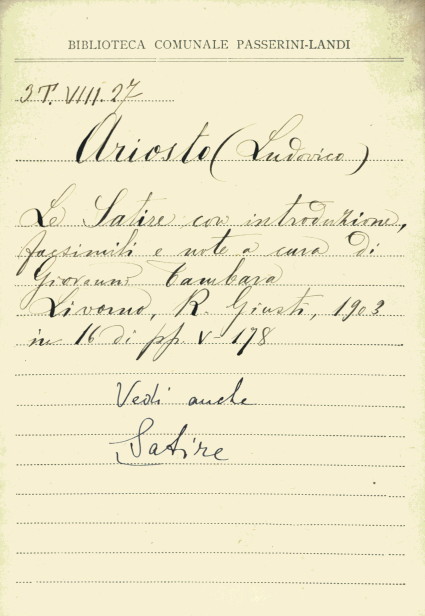 BIBLIOTECA COMUNALE PASSERINI-LANDI
3T. VIII. 27
Ariosto (Ludovico)
Le Satire con introduzione,
facsimili e note a cura di
Giovanni Tambara
Livorno, R. Giusti, 1903
in 16 di pp. V-178
Vedi anche
Satire